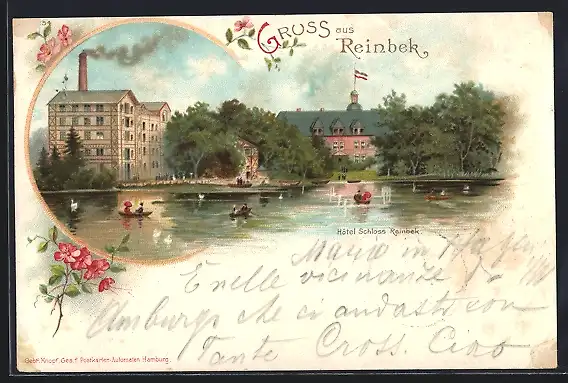 54
GRUSS aus
Reinbek.
Hôtel Schloss Reinbek.
Maria in
E nelle vicinanze di
Amburgo che ci andasti con
Tante Cross. Ciao
Gebr. Knopf Ges. f. Postkarten-Automaten Hamburg.